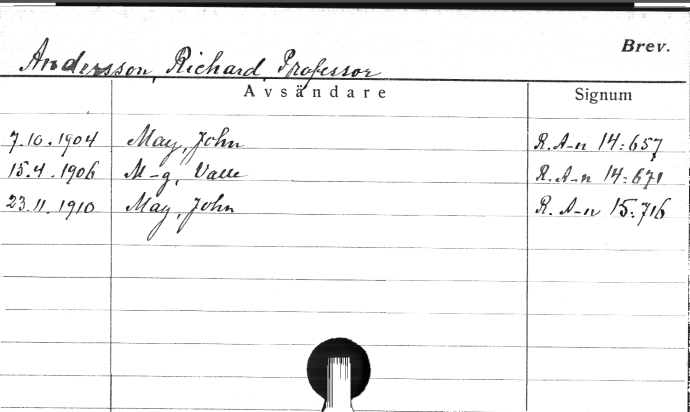 Brev.
Andersson, Richard, Professor
Avsändare Signum
7.10.1904 May, John R.A-n 14:657
15.4.1906 M-g, Valle R.A-n 14:671
23.11.1910 May, John R.A-n 15:716